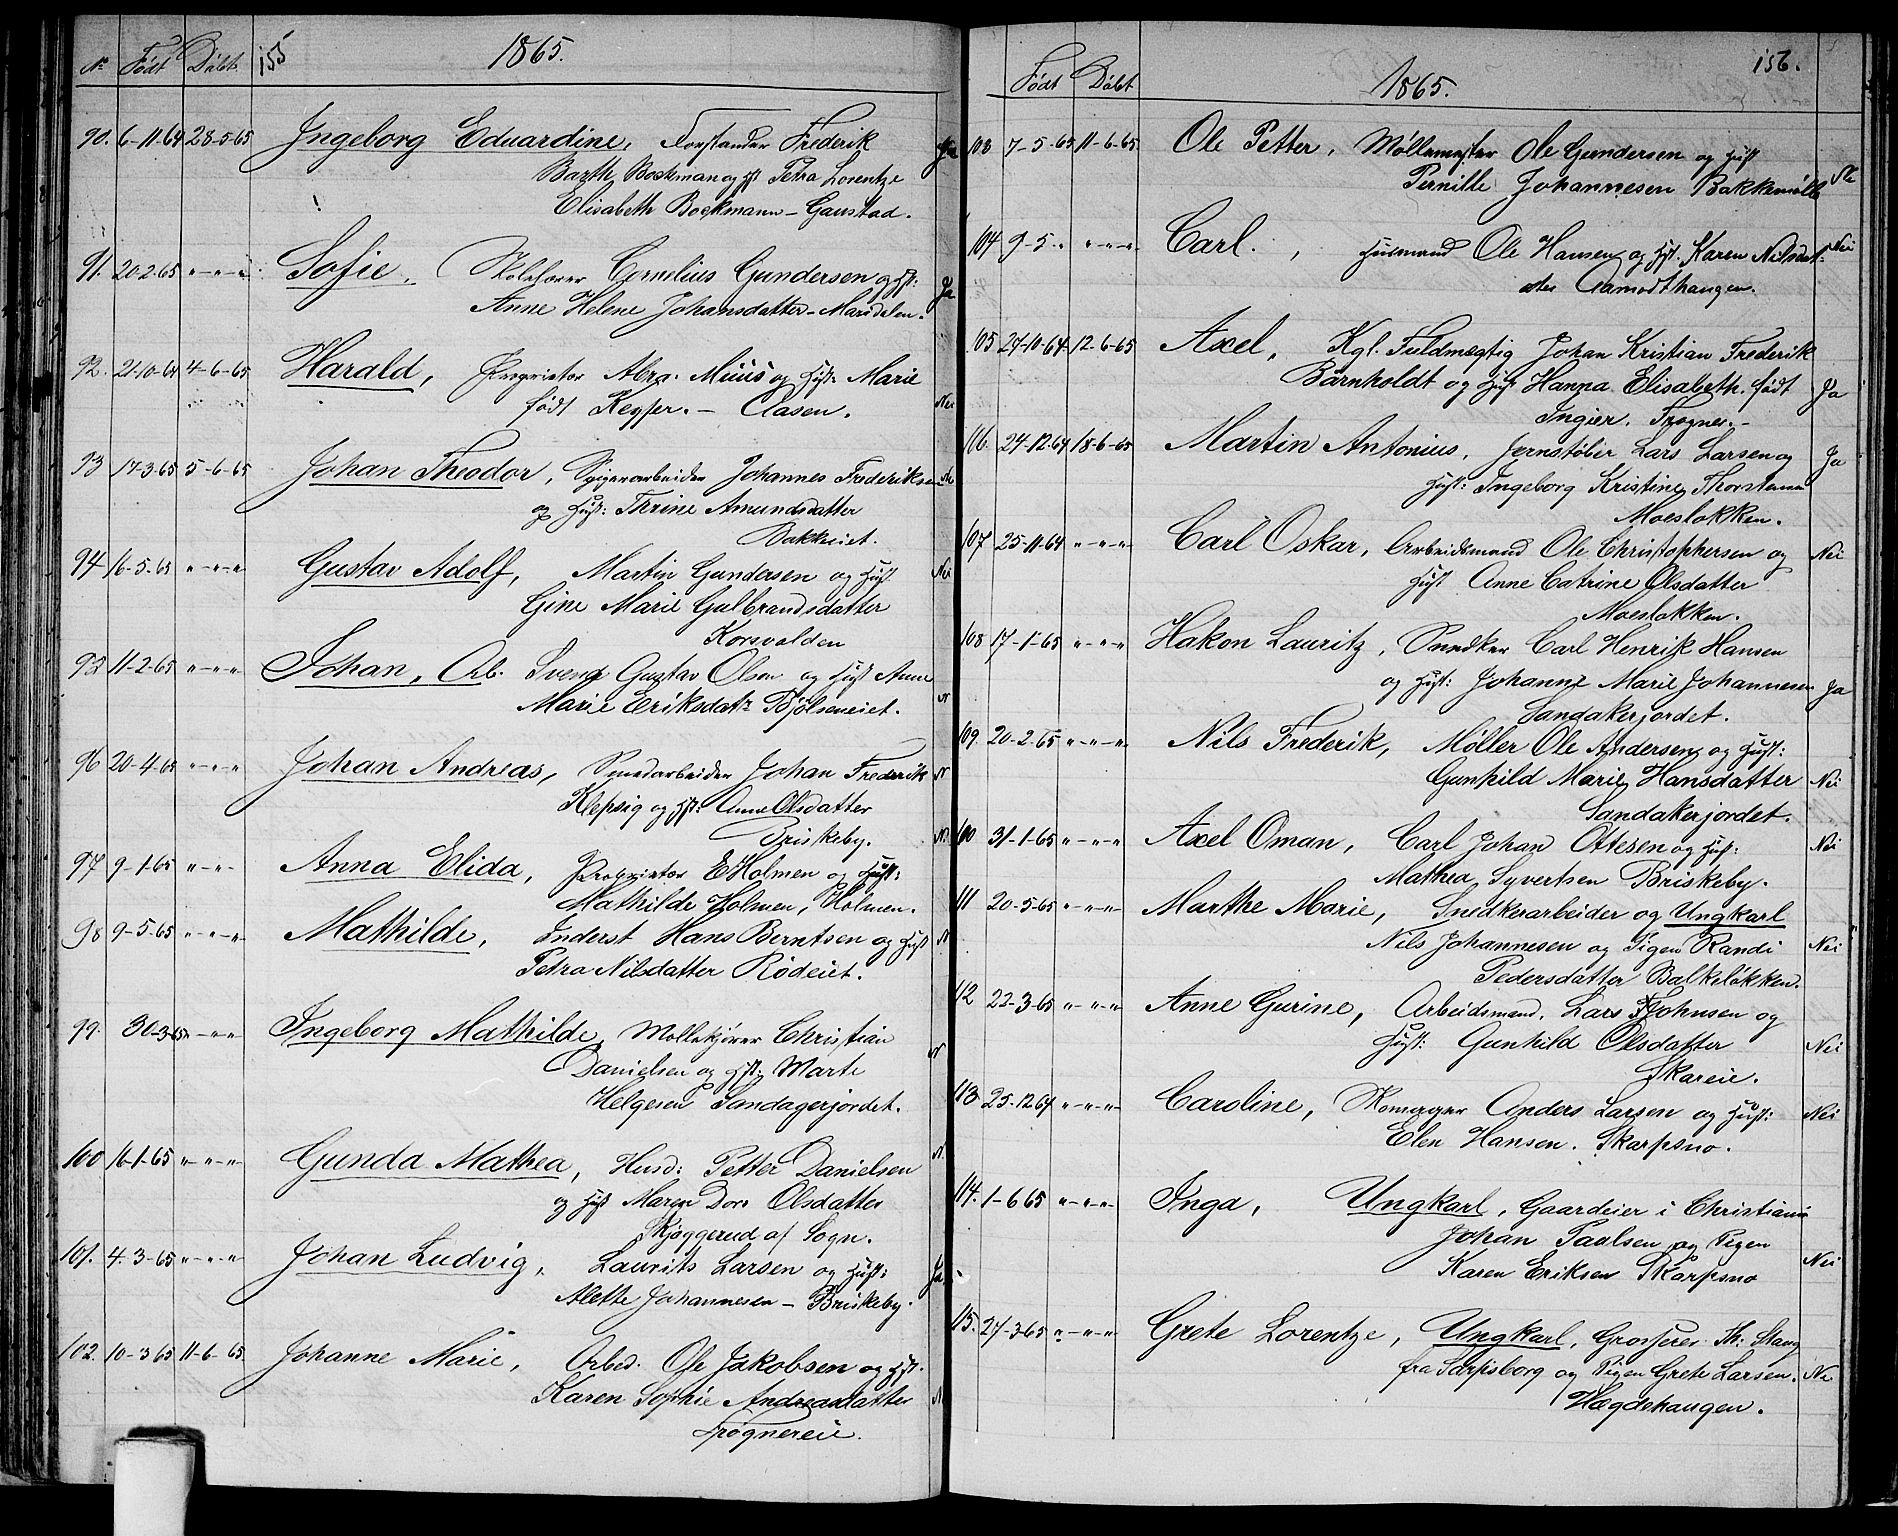 No Født Døbt 155 1865.
90. 6-11-64 28-5-65 Ingeborg Eduardine, Forstander Frederik Ja
Barth Boekman og hst Petra Lorentze
Elisabeth Boekmann - Gaustad.
91. 20-2-65 "-"-" Sofie, Skolelærer Cornelius Gundersen og hst: Ja
Anne Helene Johansdatter - Maridalen.
92. 21-10-64 4-6-65 Harald, Proprietær Abra: Muus og hust: Marie
født Keyser. - Aasen. Nei
93 17-3-65 5-6-65 Johan Theodor, Spigerarbeider Johannes Frederiksen
og hust: Thrine Amundsdatter
Bakkeiet.
94 16-5-65 "-"-" Gustav Adolf, Martin Gundersen og hust Nei
Gine Marie Gulbrandsdatter
Korsvolden
95 11-2-65 "-"-" Johan, Arb. Svend Gustav Olsen og hust Anne
Marie Eriksdatr Bjølseneiet. N
96 20-4-65 "-"-" Johan Andreas, Smedarbeider Johan Frederik N
Klepsig og hst: Anne Olsdatter
Briskeby. N.
97 9-1-65 "-"-" Anna Elida, Proprietær E Holmen og hust:
Mathilde Holmen, Holmen.
98 9-5-65 "-"-" Mathilde, Inderst Hans Berntsen og hust N
Petra Nilsdatter Rødeiet.
99. 30-3-65 "-"-" Ingeborg Mathilde, Møllekjører Christian
Danielsen og hst: Marte N
Helgesen Sandagerjordet.
100 16-1-65 "-"-" Gunda Mathea, Husd: Petter Danielsen N.
og hust Maren Dor. Olsdatter
Skjøggerud af Sogn.
101. 4-3-65 "-"-" Johan Ludvig, Laurits Larsen og hust: Ja
Alette Johannesen - Briskeby.
102. 10-3-65 11-6-65 Johanne Marie, Arbed. Ole Jakobsen og hst.
Karen Sophie Andreasdatter N
Frøgnereie.
Født Døbt 1865. 156.
103 7-5-65 11-6-65 Ole Petter, Møllemester Ole Gundersen og hust
Pernille Johannesen Bakkemølle
104 9-5-" "-"-" Carl, Husmand Ole Hansen og hst. Karen Nilsdat- Nei
ter Aamodthaugen.
105 24-10-64 12-6-65 Axel, Kgl. Fuldmægtig Johan Kristian Frederik
Bärnholdt og hust Hanna Elisabeth født Ja
Ingier, Frogner.-
116. 24-12-64 18-6-65 Martin Antonius, Jernstøber Lars Larsen og Ja
hust: Ingeborg Kristine Thorstensen
Moesløkken.
107 25-11-64 "-"-" Carl Oskar, Arbeidsmand Ole Christophersen og Nei
hust Anne Catrine Olsdatter
Moesløkken.
108 17-1-65 "-"-" Hakon Lauritz, Snedker Carl Henrik Hansen
og hust: Johanne Marie Johannesen Ja
Sandakerjordet.
109. 20-2-65 "-"-" Nils Frederik, Møller Ole Andersen og hust:
Gunhild Marie Hansdatter Nei
Sandakerjordet.
100 31-1-65 "-"-" Axel Oman, Carl Johan Ottesen og hust: Nei
Mathea Syvertsen Briskeby.
111 20-5-65 "-"-" Marthe Marie, Snedkerarbeider og Ungkarl
Nils Johannesen og Pigen Randi Nei
Pedersdatter Balkeløkken.
112 22-3-65 "-"-" Anne Gurine, Arbeidsmand, Lars Johnsen og
hust: Gunhild Olsdatter Nei
Skareie.
113 25-12-64 "-"-" Caroline, Skomager Anders Larsen og hust: Nei
Elen Hansen. Skarpsno.
114. 1-6 65 "-"-" Inga, Ungkarl, Gaardeier i Christiania
Johan Paulsen og Pigen
Karen Eriksen Skarpsno Nei
115. 27-3-65 "-"-" Grete Lorentze, Ungkarl, Grosserer Th: Stang
fra Sarpsborg og Pigen Grete Larsen. Nei
Hægdehaugen.